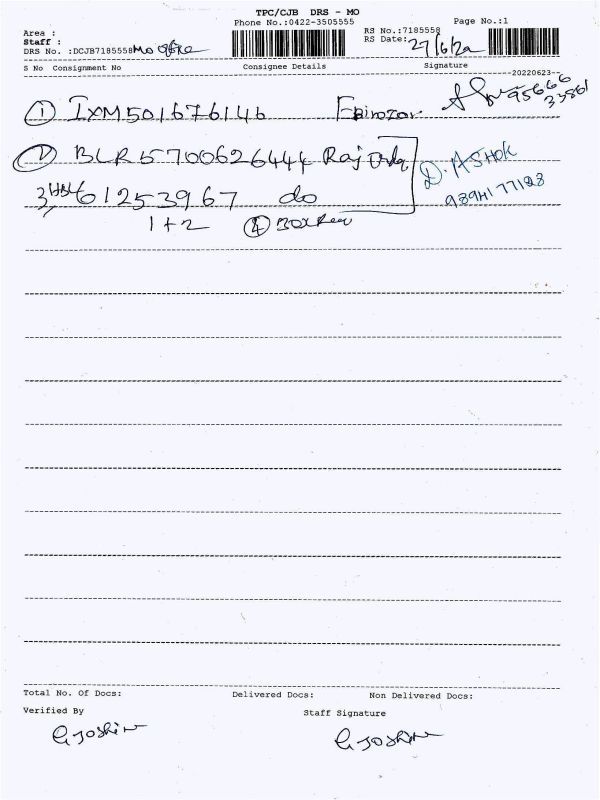 TPC/CJB DRS - MO
Phone No.:0422-3505555 Page No.:1
Area : RS No.:7185558
Staff : RS Date: 27/6/22
DRS No. :DCJB7185558 MO office
S No Consignment No Consignee Details Signature
--20220623--
① IXM501676146 95666
33861
② BLR5700626444 Raj D. ASHOK
3, 61253967 do 9894177128
1 + 2 ④
Total No. Of Docs: Delivered Docs: Non Delivered Docs:
Verified By Staff Signature
G Joshin G Joshin